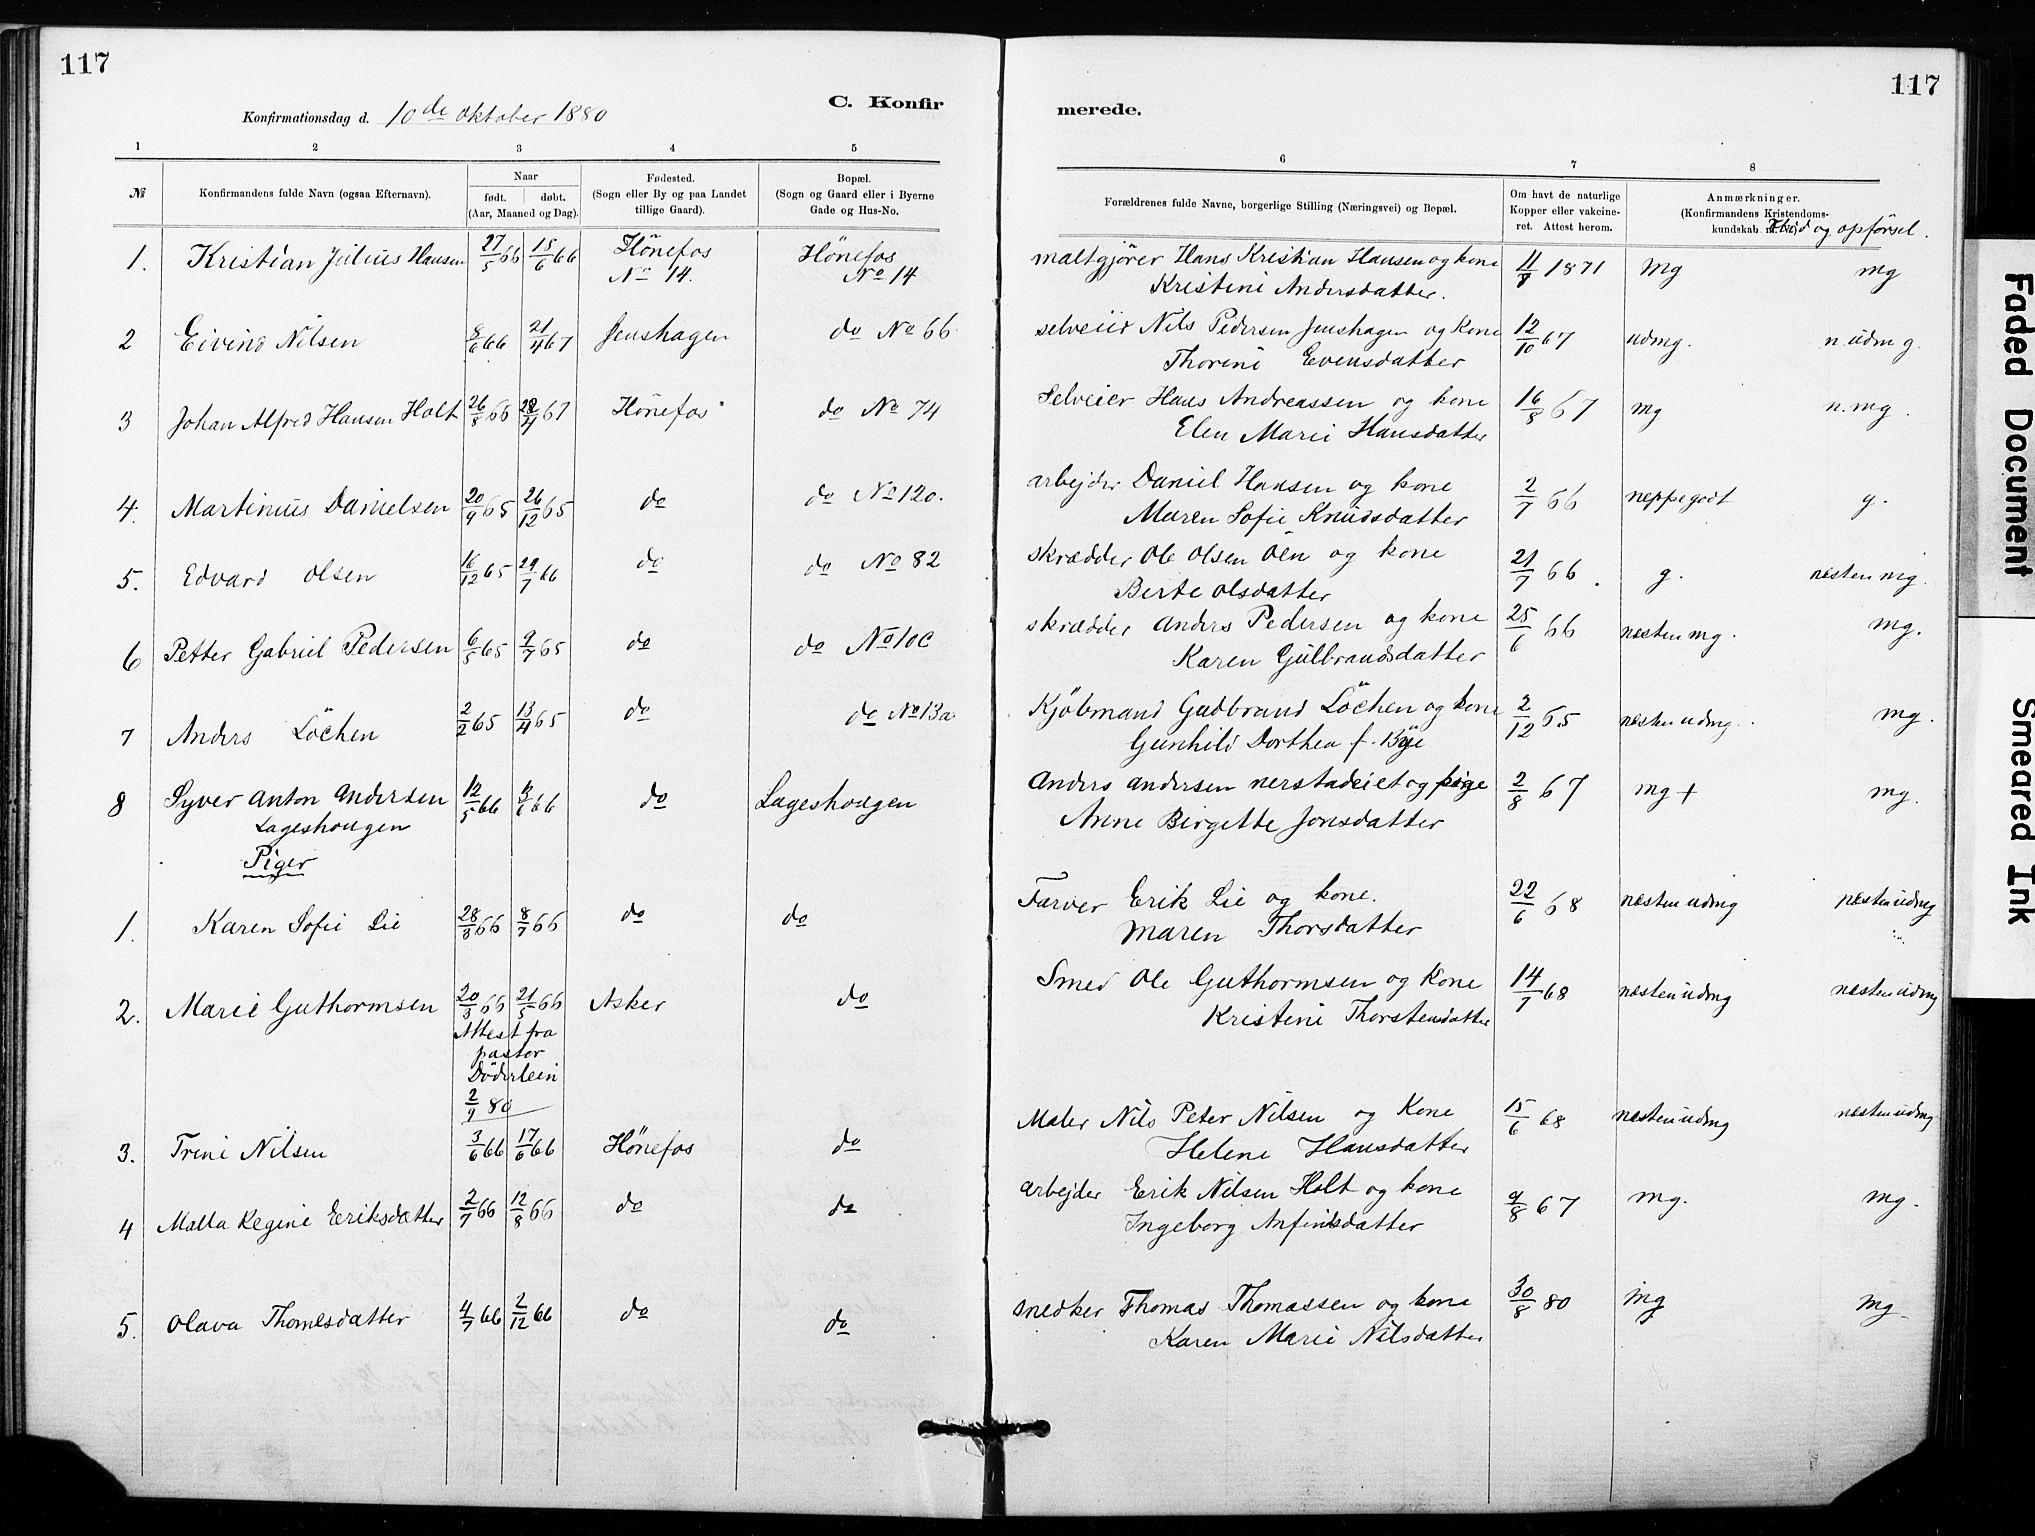 117
117
Konfirmationsdag d. 10de oktober 1880
C. Konfir
merede.
1 2 3 4 5
6 7 8
№ Konfirmandens fulde Navn (ogsaa Efternavn). Naar født. døbt. (Aar, Maaned og Dag). Fødested. (Sogn eller By og paa Landet tillige Gaard). Bopæl. (Sogn og Gaard eller i Byerne Gade og Hus-No.
Forældrenes fulde Navne, borgerlige Stilling (Næringsvei) og Bopæl. Om havt de naturlige Kopper eller vakcineret. Attest herom. Anmærkninger. (Konfirmandens Kristendomskundskab m. v.) Flid og opførsel.
1. Kristian Julius Hansen 27/5 66 15/6 66 Hönefos No 14. Hönefos No 14 maltgjører Hans Kristian Hansen og kone 11/9 1871 Mg mg
Kristine Andersdatter.
2 Eivind Nilsen 8/6 66 21/4 67 Jenshagen do No 66 selveier Nils Pedersen Jenshagen og Kone 12/10 67 udmg. n. udm g.
Thorine Evensdatter
3 Johan Alfred Hansen Holt 26/8 66 28/4 67 Hönefos do No 74 Selveier Hans Andreassen og kone 16/8 67 mg n. mg.
Elen Marie Hansdatter
4. Martinius Danielsen 20/9 65 26/12 65 do do No 120. arbejder Daniel Hansen og kone 2/7 66 neppe godt g.
Maren Sofie Knudsdatter
5. Edvard Olsen 16/12 65 29/7 66 do do No 82 skrædder Ole Olsen Öen og kone 21/7 66. g. næsten mg.
Berte Olsdatter
6 Petter Gabriel Pedersen 6/5 65 9/7 65 do do No 10c skrædder Anders Pedersen og kone 25/6 66 næsten mg. mg.
Karen Gulbrandsdatter
7 Anders Löchen 2/2 65 13/4 65 do do No 13a Kjöbmand Gudbrand Löchen og kone 2/12 65 næsten udmg. mg.
Gunhild Dorthea f. Bye
8 Syver Anton Andersen 12/5 66 3/6 66 do Lageshougen Anders Andersen nerstadeiet og pige 2/8 67 mg + mg.
Lageshougen Anne Birgitte Jonsdatter
Piger
1. Karen Sofie Lie 28/3 66 8/7 66 do do Farver Erik Lie og kone. 22/6 68 næsten udmg næsten udmg
Maren Thorsdatter
2. Marie Guthormsen 20/3 66 21/5 66 Asker do Smed Ole Guthormsen og Kone 14/7 68 næsten udmg næsten udmg
Kristine Thorstensdatter
Attest fra
pastor
Döderlein
2/9 80
3. Trine Nilsen 3/6 66 17/6 66 Hönefos do Maler Nils Peter Nilsen og Kone 15/6 68 næsten udmg næsten udmg
Helene Hansdatter
4 Malla Regine Eriksdatter 2/7 66 12/8 66 do do arbejder Erik Nilsen Holt og kone 9/8 67 mg. mg.
Ingeborg Anfindsdatter
5. Olava Thomesdatter 4/7 66 2/12 66 do do snedker Thomas Thomassen og kone 30/8 80 mg mg
Karen Marie Nilsdatter
Faded Document
Smeared Ink